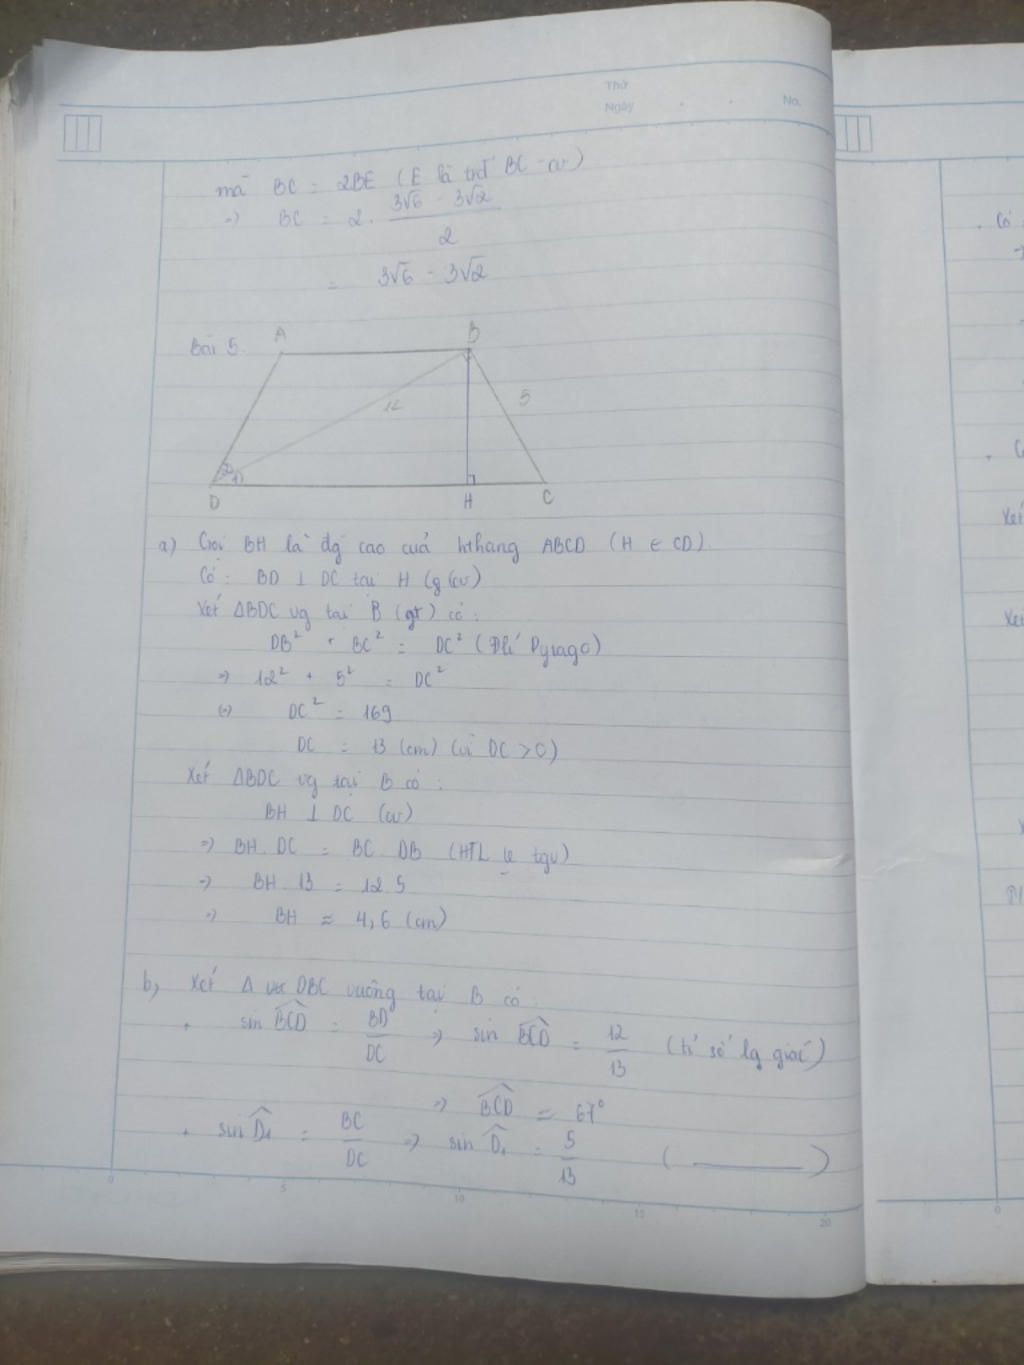 Thứ
Ngày . . No.
mà BC = 2BE (E là trđ BC - cv)
=> BC = 2. 3√6 - 3√2
2
= 3√6 - 3√2
Bài 5.
A B
12 5
2 1
D H C
a) Gọi BH là đg cao cuả hthang ABCD (H ∈ CD).
Có : BD ⊥ DC tại H
Xét ΔBDC vg tại B (gt) có :
DB² + BC² = DC² (Đlí Pytago)
=> 12² + 5² = DC²
(=) DC² = 169
DC = 13 (cm) (vì DC > 0)
Xét ΔBDC vg tại B có :
BH ⊥ DC (cv)
=> BH . DC = BC . DB (HTL tgv)
=> BH . 13 = 12 . 5
=> BH ≈ 4,6 (cm)
b, Xét Δ DBC vuông tại B có :
+ sin BCD = BD/DC => sin BCD = 12/13 (tỉ số lg giác)
=> BCD ≈ 67°
+ sin D₁ = BC/DC => sin D₁ = 5/13 ( ——— )
0 5 10 15 20
Có
Xét
Xét
0